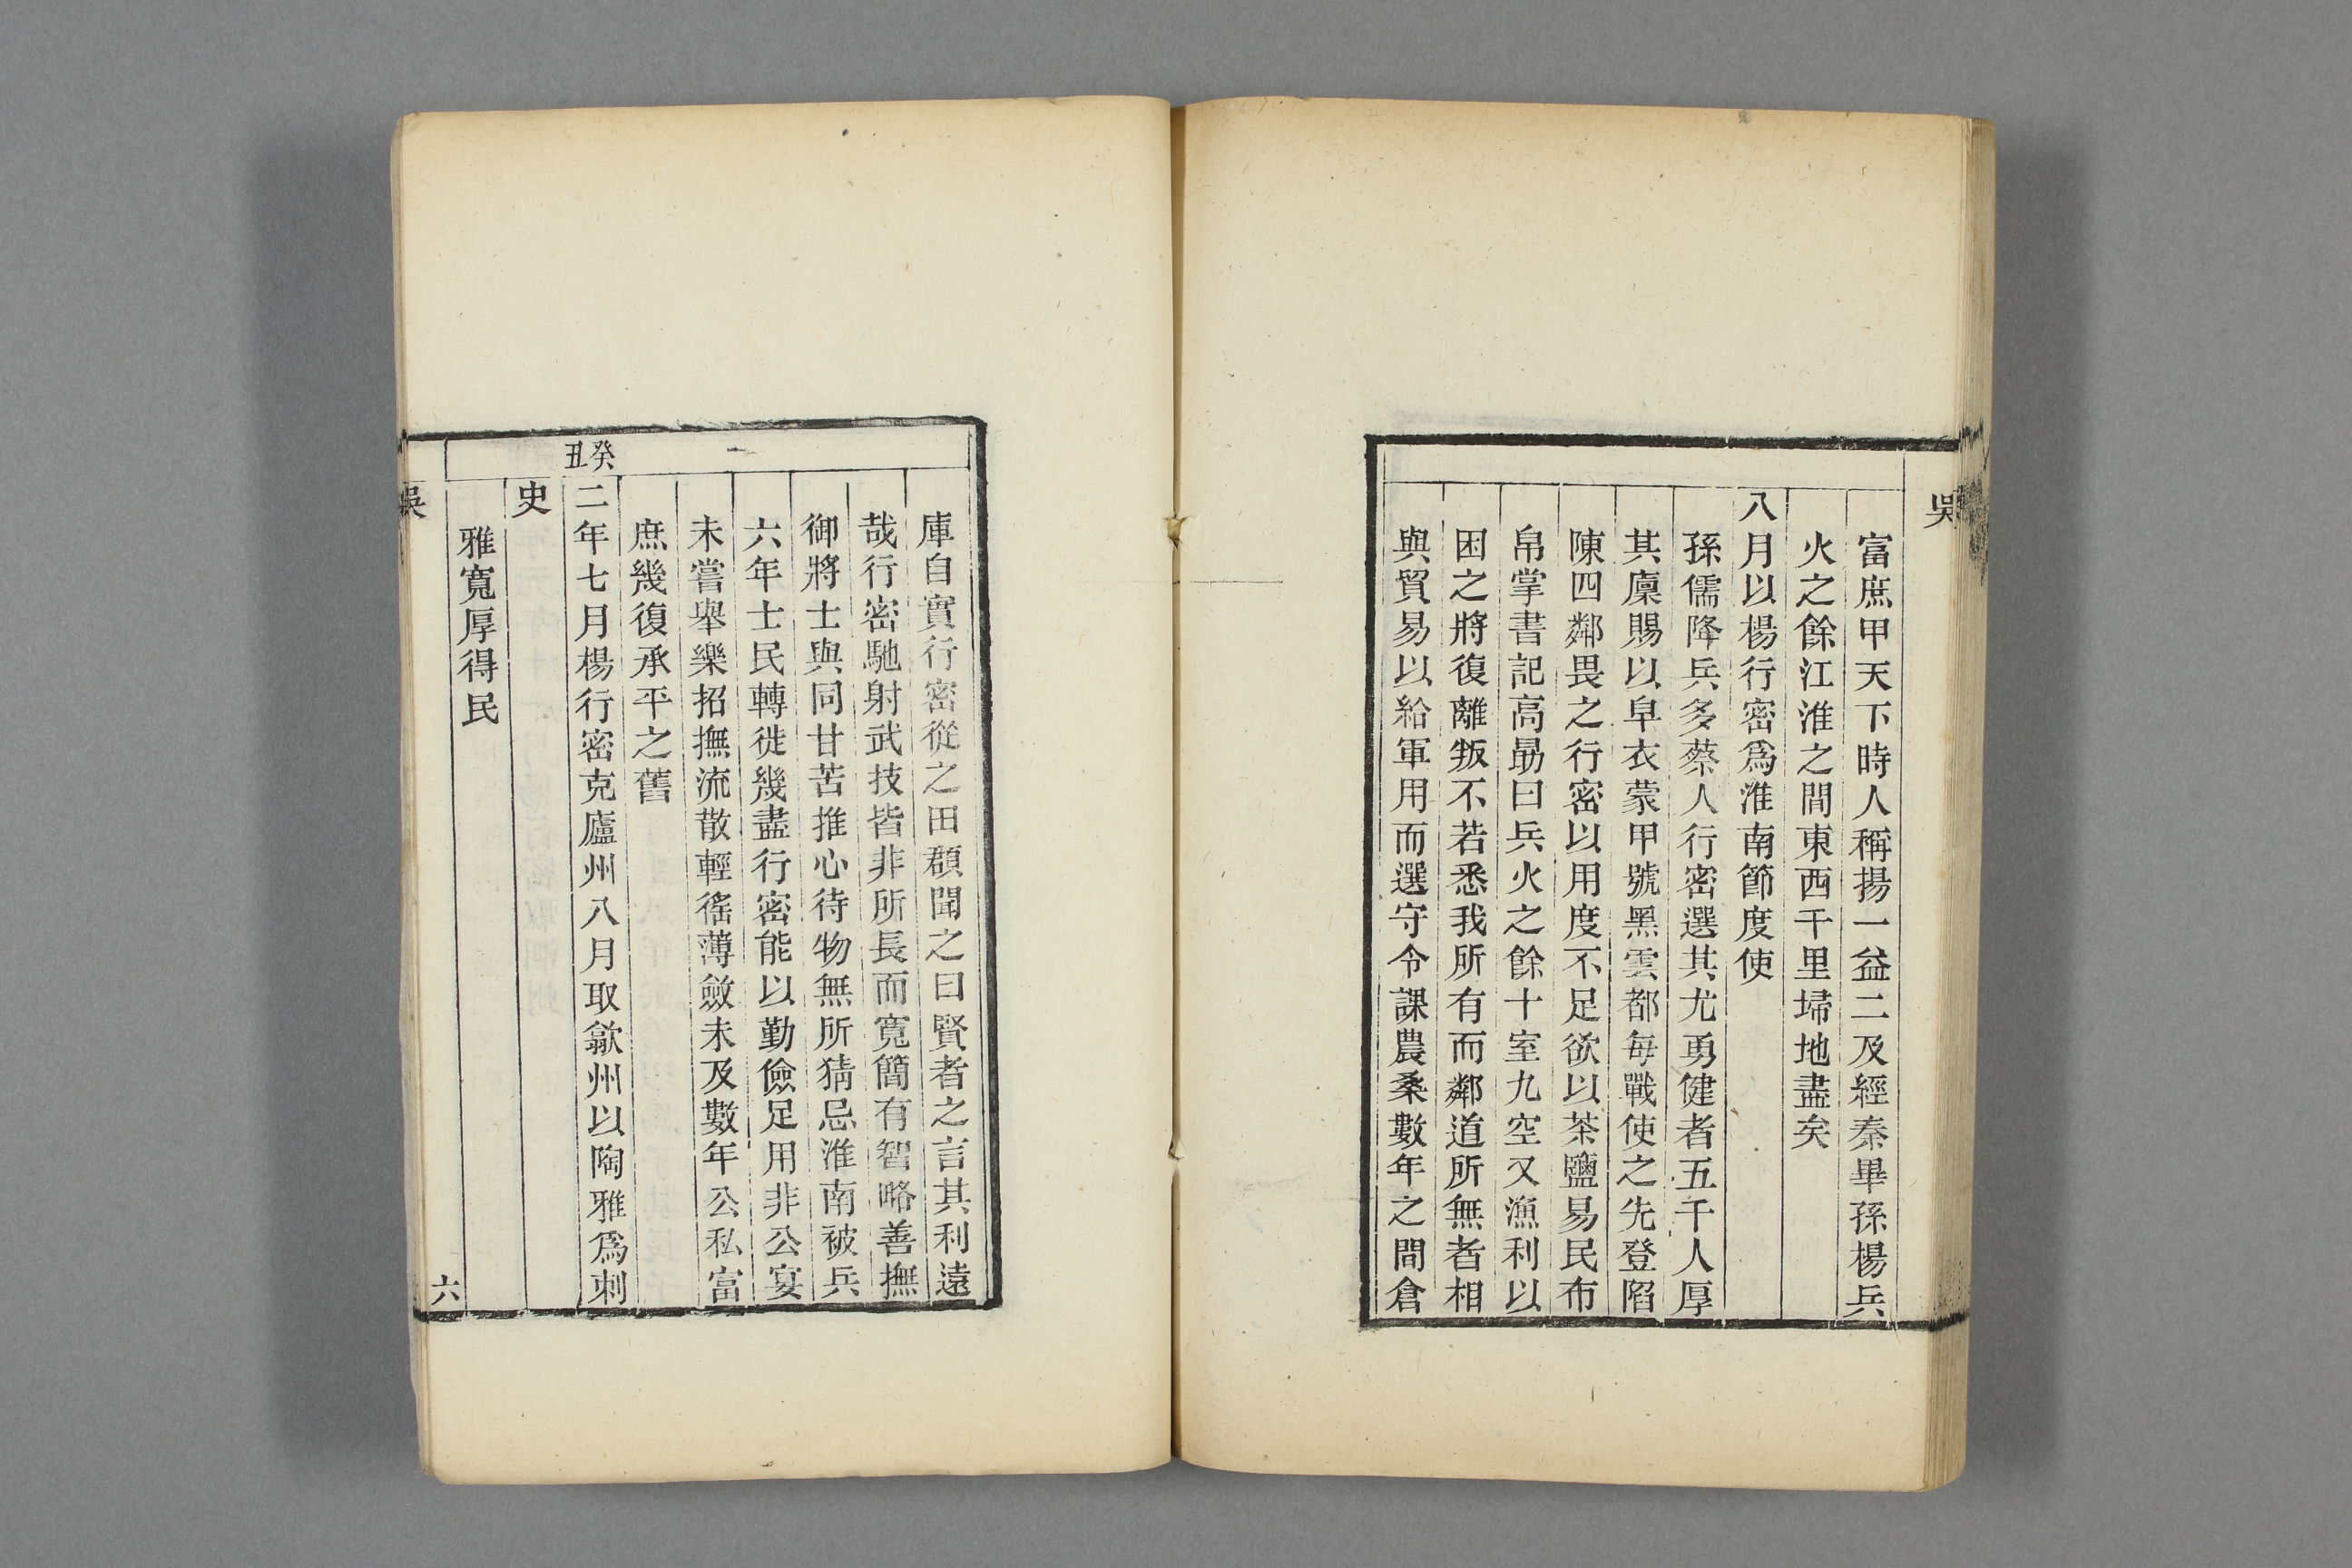 吳
富庶甲天下時人稱揚一益二及經秦畢孫楊兵
火之餘江淮之間東西千里埽地盡矣
八月以楊行密爲淮南節度使
孫儒降兵多蔡人行密選其尤勇健者五千人厚
其廩賜以皁衣蒙甲號黑雲都每戰使之先登陷
陳四鄰畏之行密以用度不足欲以茶鹽易民布
帛掌書記高勗曰兵火之餘十室九空又漁利以
困之將復離叛不若悉我所有而鄰道所無者相
與貿易以給軍用而選守令課農桑數年之間倉
庫自實行密從之田頵聞之曰賢者之言其利遠
哉行密馳射武技皆非所長而寬簡有智略善撫
御將士與同甘苦推心待物無所猜忌淮南被兵
六年士民轉徙幾盡行密能以勤儉足用非公宴
未嘗舉樂招撫流散輕徭薄斂未及數年公私富
庶幾復承平之舊
癸丑
二年七月楊行密克廬州八月取歙州以陶雅爲刺
史
雅寬厚得民
吳
六